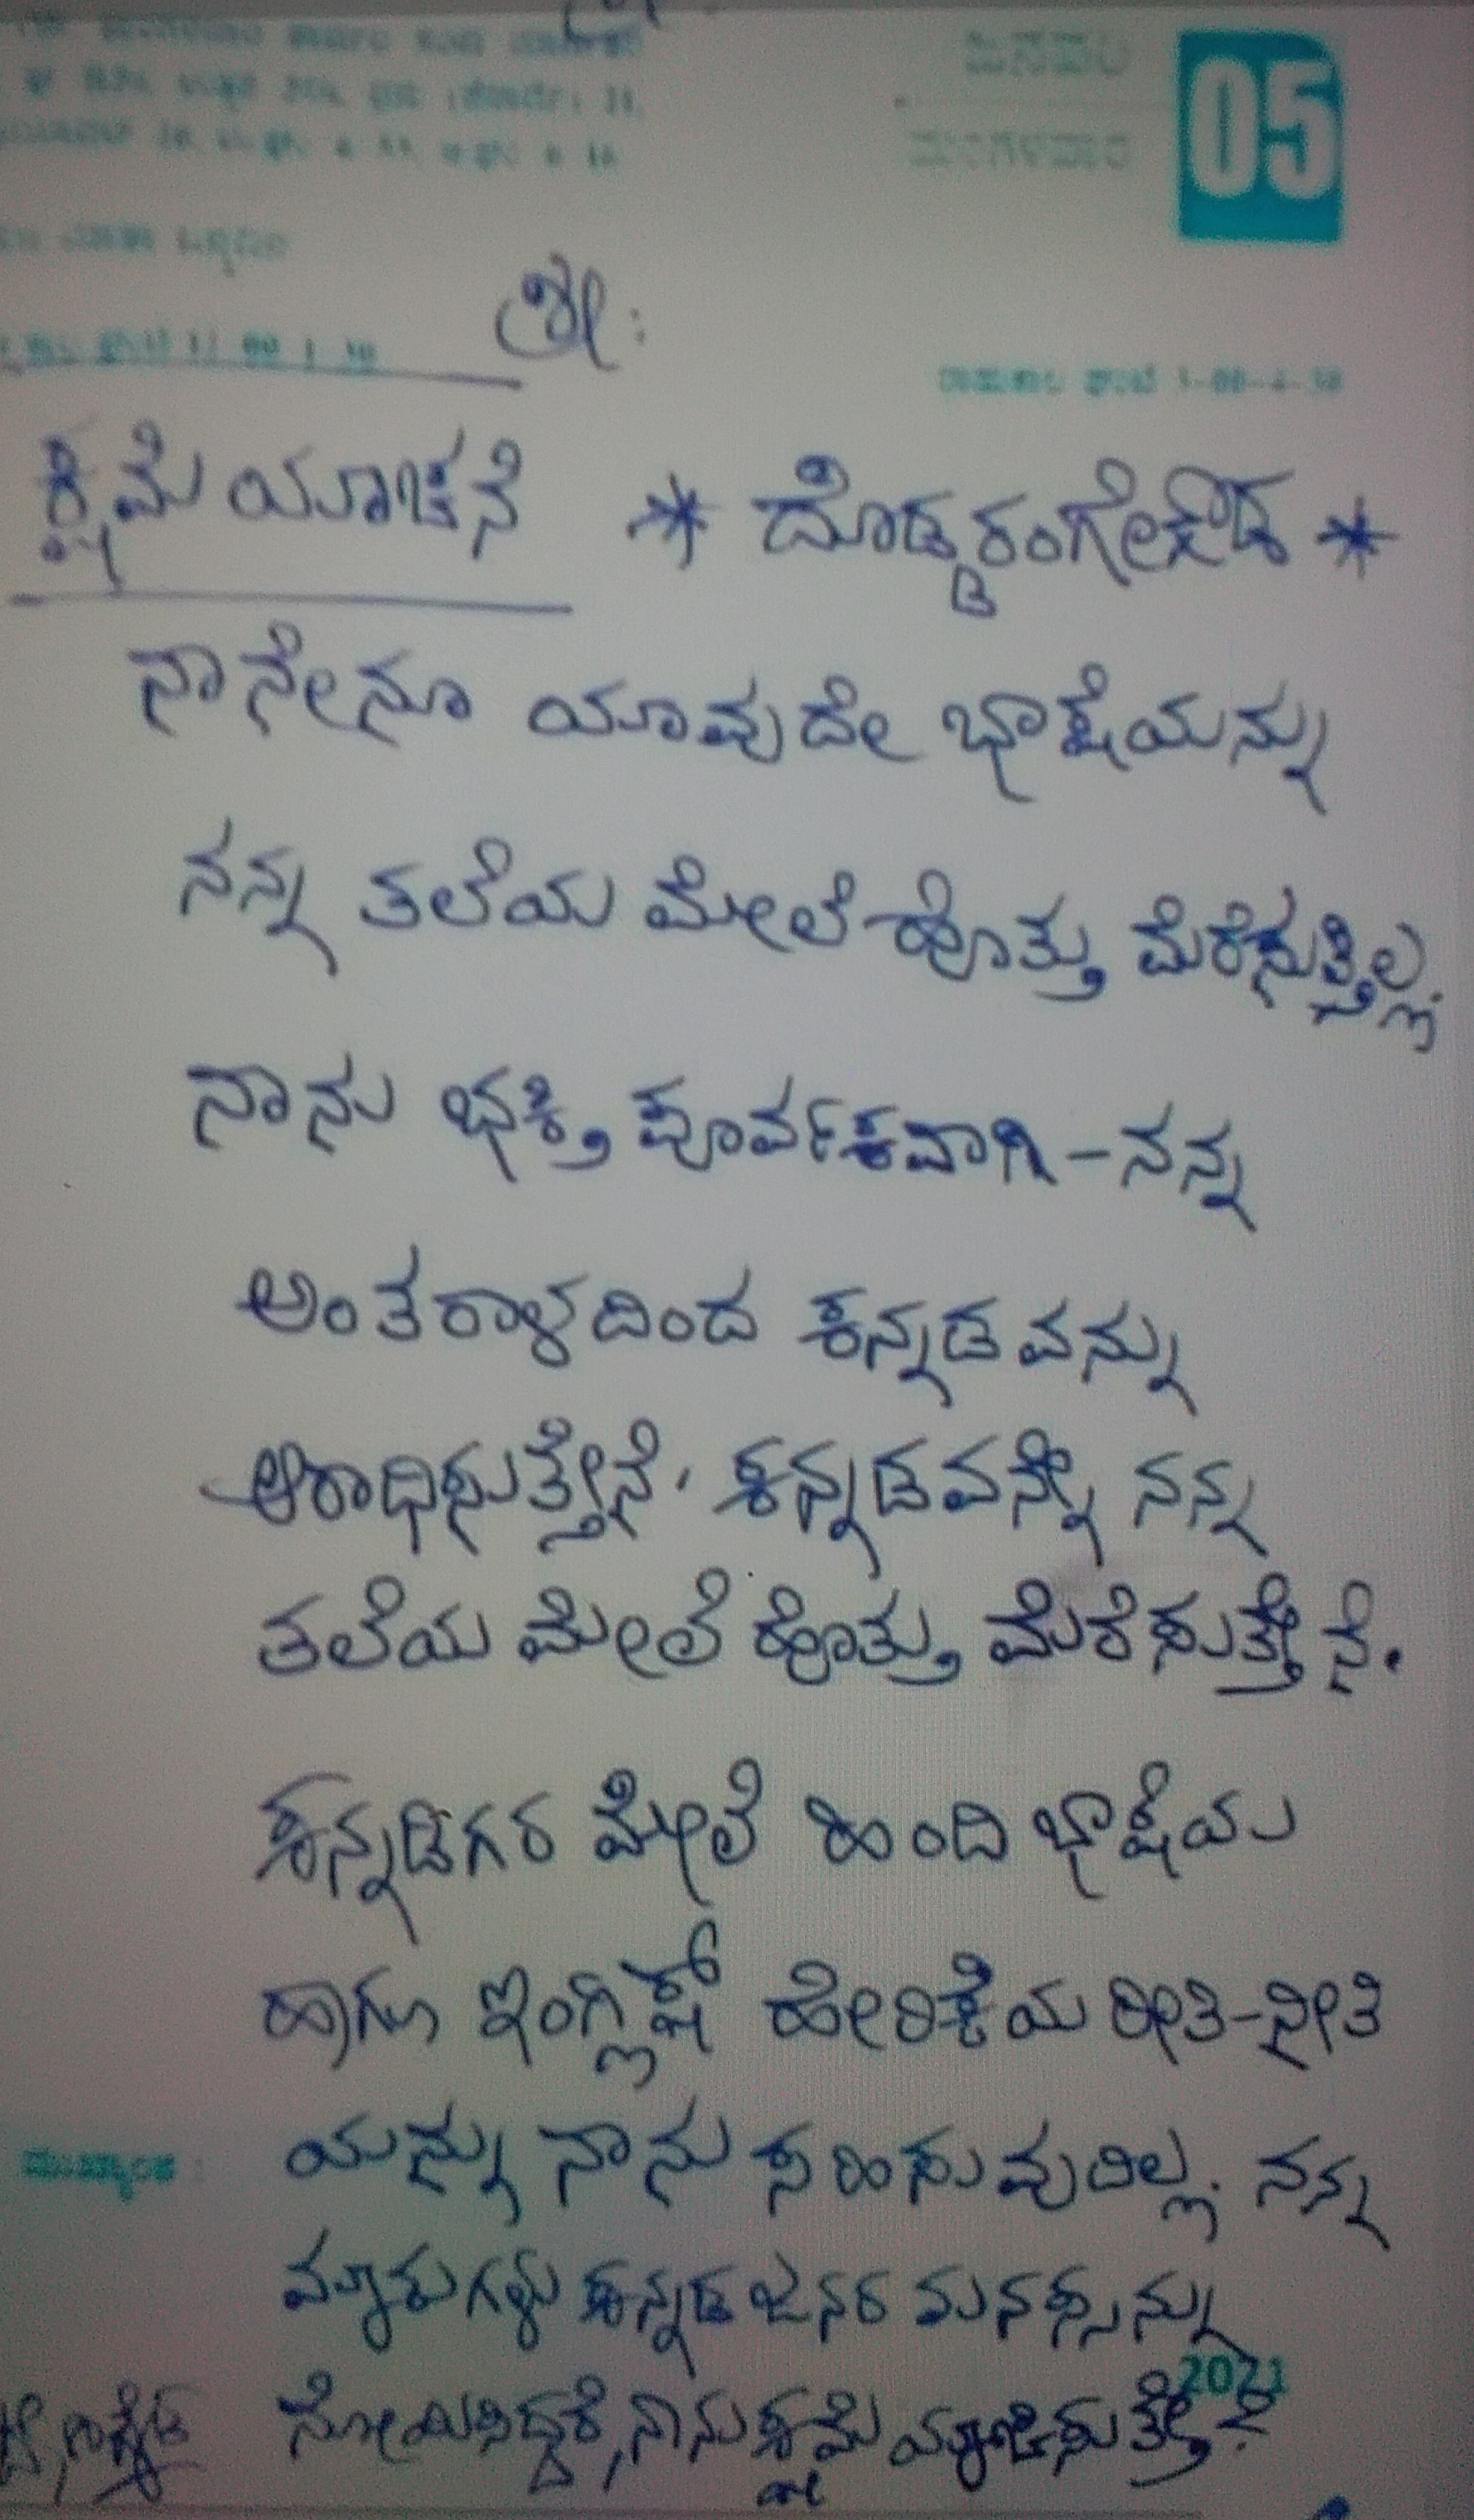 05
ಶ್ರೀ:
ಕ್ಷಮೆ ಯಾಚನೆ * ದೊಡ್ಡರಂಗೇಗೌಡ *
ನಾನೇನೂ ಯಾವುದೇ ಭಾಷೆಯನ್ನು
ನನ್ನ ತಲೆಯ ಮೇಲೆ ಹೊತ್ತು ಮೆರೆಸುತ್ತಿಲ್ಲ.
ನಾನು ಭಕ್ತಿ ಪೂರ್ವಕವಾಗಿ - ನನ್ನ
ಅಂತರಾಳದಿಂದ ಕನ್ನಡವನ್ನು
ಆರಾಧಿಸುತ್ತೇನೆ. ಕನ್ನಡವನ್ನೇ ನನ್ನ
ತಲೆಯ ಮೇಲೆ ಹೊತ್ತು ಮೆರೆಸುತ್ತೇನೆ.
ಕನ್ನಡಿಗರ ಮೇಲೆ ಹಿಂದಿ ಭಾಷೆಯ
ಹಾಗೂ ಇಂಗ್ಲಿಷ್ ಹೇರಿಕೆಯ ರೀತಿ-ನೀತಿ
ಯನ್ನು ನಾನು ಸಹಿಸುವುದಿಲ್ಲ. ನನ್ನ
ಮಾತುಗಳು ಕನ್ನಡ ಜನರ ಮನಸ್ಸನ್ನು
2021
ನೋಯಿಸಿದ್ದರೆ, ನಾನು ಕ್ಷಮೆ ಯಾಚಿಸುತ್ತೇನೆ